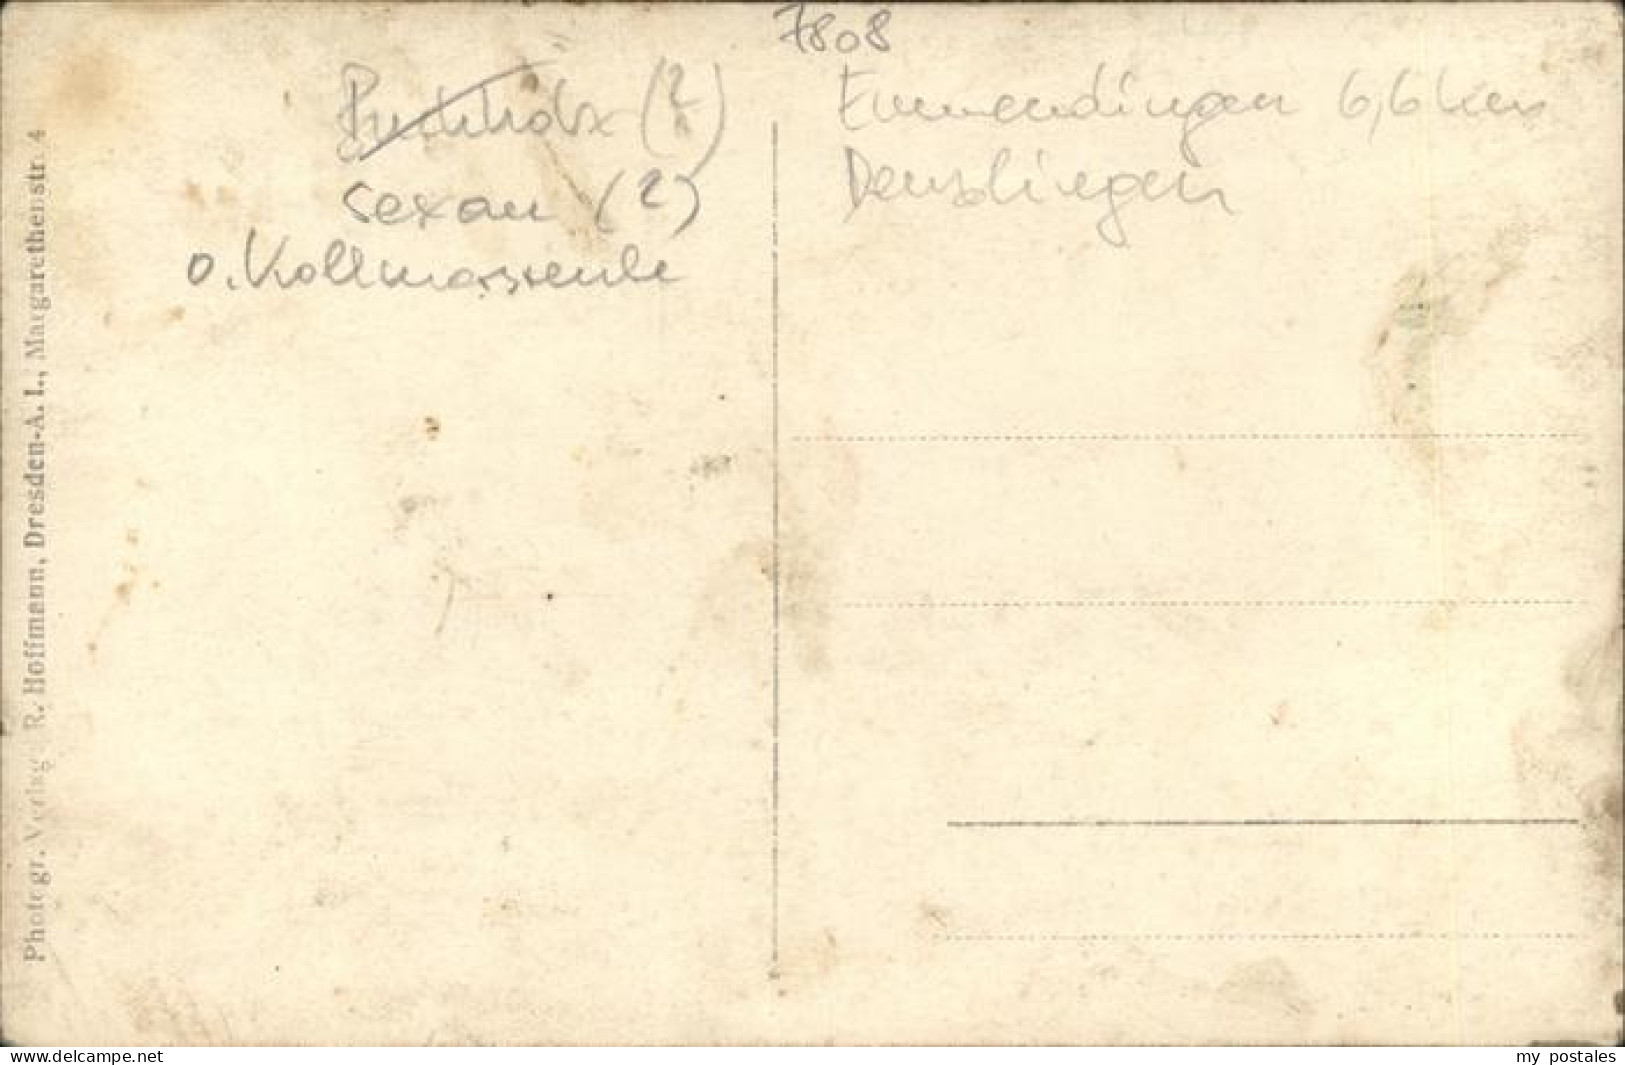 7808
Buchholz (?)
Sexau (?)
o. Kollmarsreute
Emmendingen 6,6 km
Denzlingen
Photogr. Verlag R. Hoffmann, Dresden-A. I., Margarethenstr. 4
www.delcampe.net
my_postales